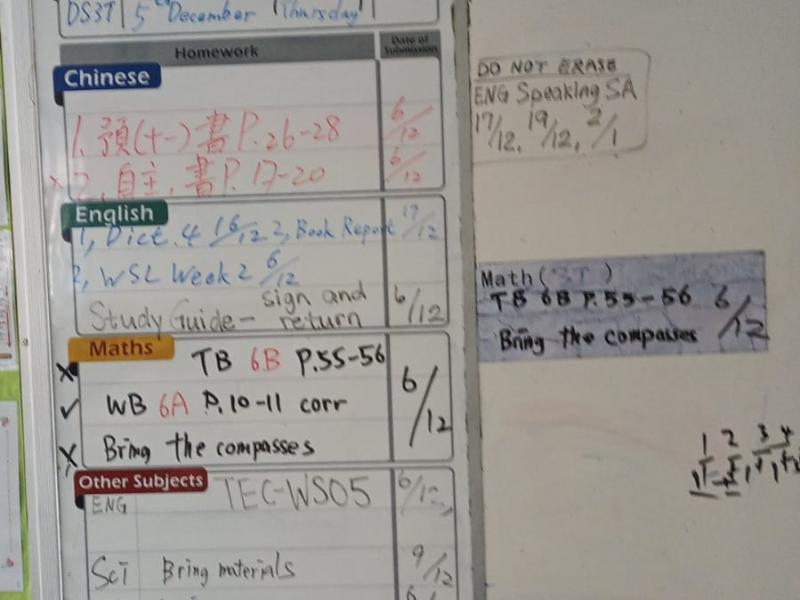 DS3T 5th December Thursday
Homework
Date of Submission
Chinese
1. 預(十一) 書 P.26-28 6/12
x 2. 自主. 書 P. 17-20 6/12
English
1, Dict. 4 16/12 3, Book Report 17/12
2, WSL Week 2 6/12
Study Guide - sign and return 6/12
Maths
x TB 6B P.55-56
✓ WB 6A P.10-11 corr 6/12
x Bring the compasses
Other Subjects
ENG TEC-WS05 6/12
Sci Bring materials 9/12
DO NOT ERASE
ENG Speaking SA
17/12, 19/12, 2/1
Math (3T)
TB 6B P.55-56 6/12
Bring the compasses
1 2 3 4